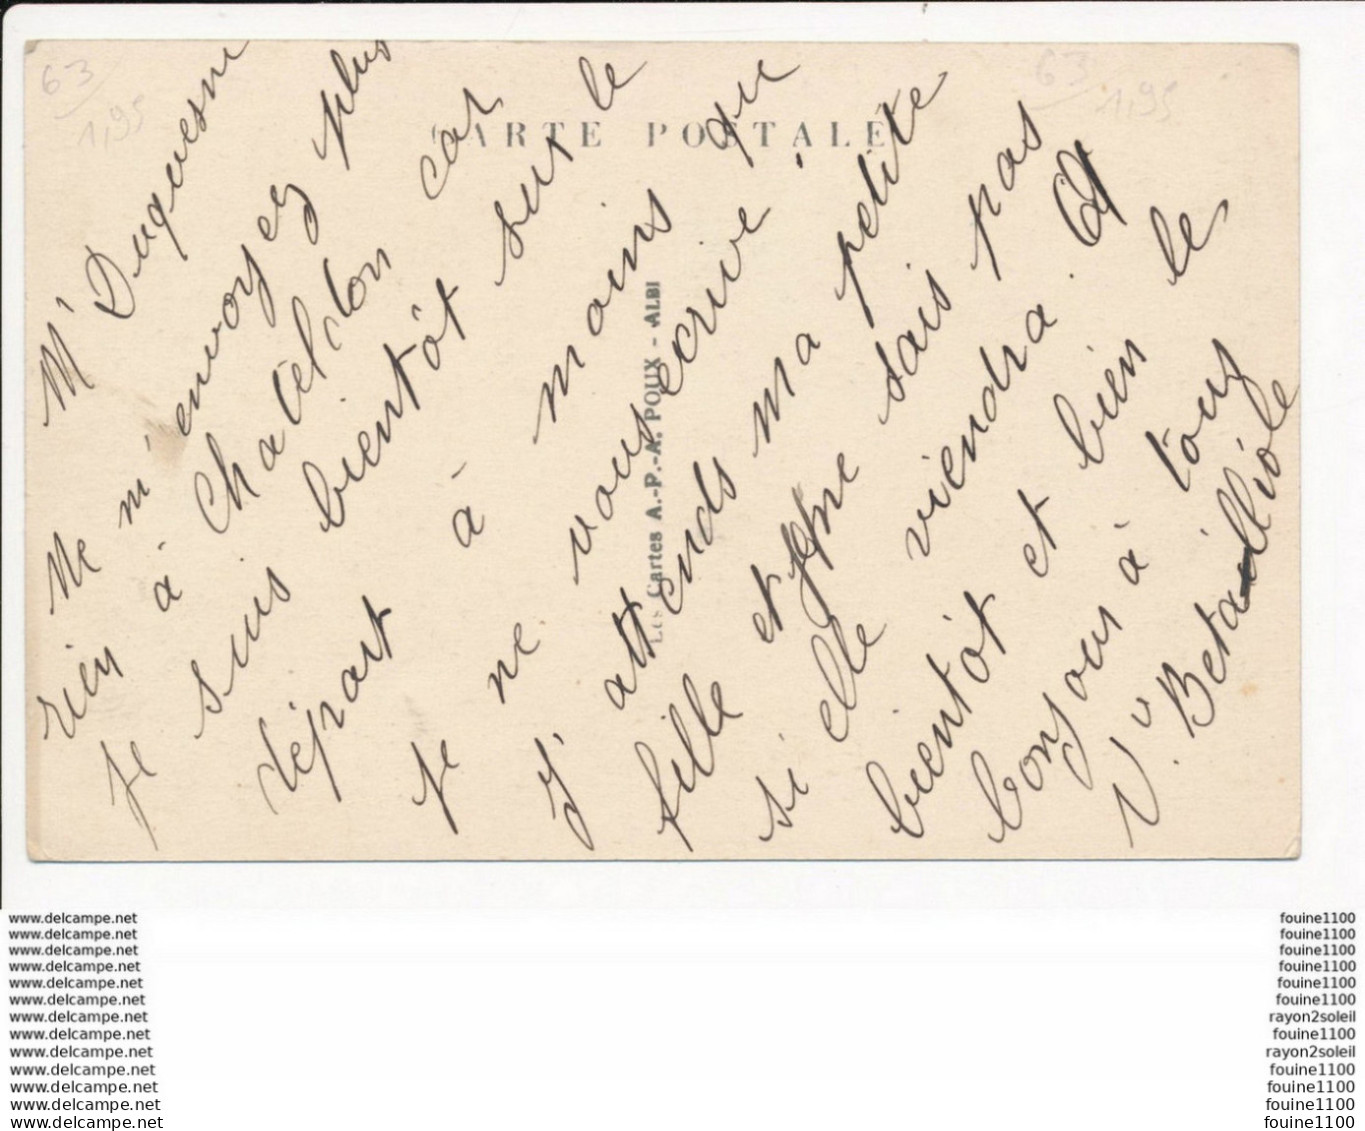 63
1,95
63
1,95
CARTE POSTALE
Les Cartes A.-P.-A. POUX - ALBI
Mr Duquesne
Ne m'envoyez plus
rien à Chateldon car
Je suis bientôt sur le
départ à moins que
Je ne vous écrive
J'attends ma petite
fille et je ne sais pas
si elle viendra. A
bientôt et bien le
bonjour à tous
Vv. Betaillole
www.delcampe.net
www.delcampe.net
www.delcampe.net
www.delcampe.net
www.delcampe.net
www.delcampe.net
www.delcampe.net
www.delcampe.net
www.delcampe.net
www.delcampe.net
www.delcampe.net
www.delcampe.net
www.delcampe.net
fouine1100
fouine1100
fouine1100
fouine1100
fouine1100
fouine1100
rayon2soleil
fouine1100
rayon2soleil
fouine1100
fouine1100
fouine1100
fouine1100